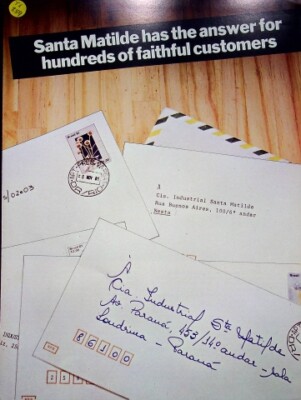 Santa Matilde has the answer for
hundreds of faithful customers
3/02=03
À
Cia. Industrial Santa Matilde
Rua Buenos Aires, 100/6º andar
Nesta
À
Cia Industrial Sta Matilde
Av. Paraná, 453/14º andar - sala
Londrina - Paraná
86100